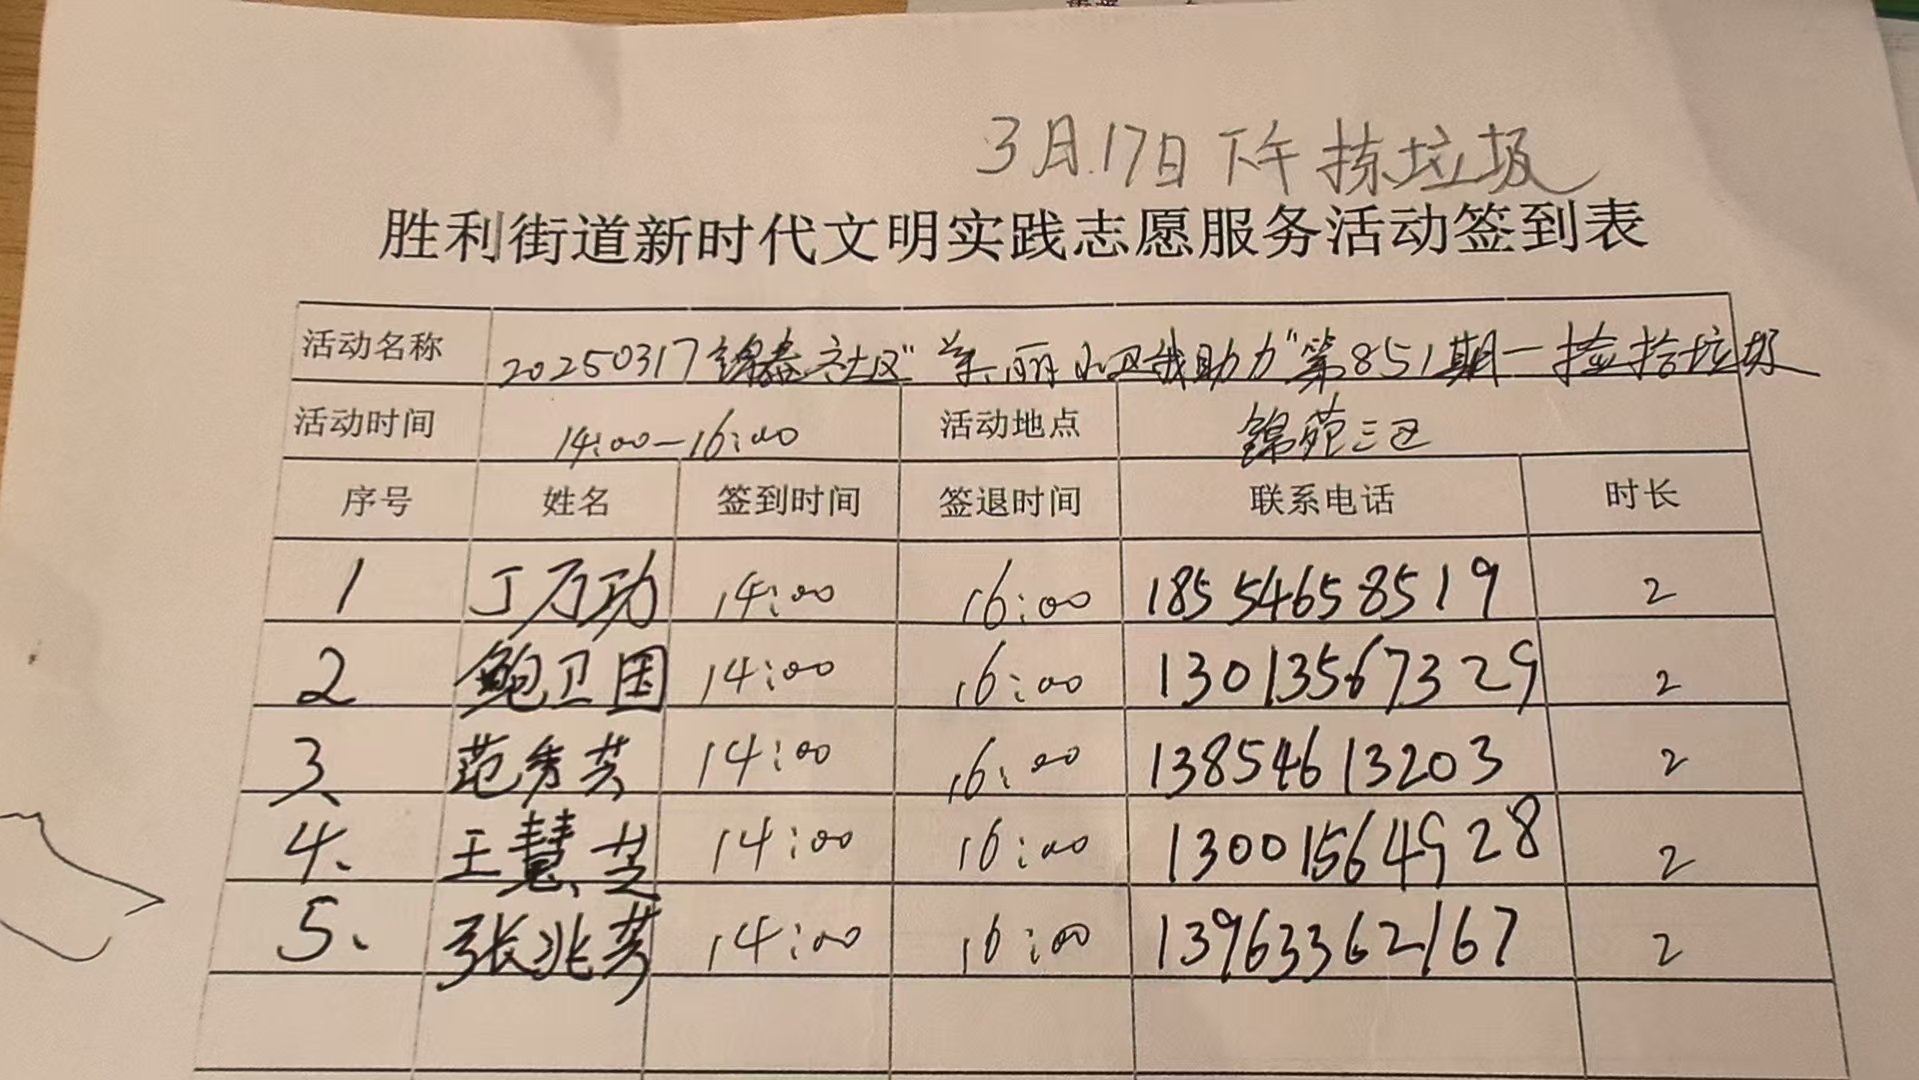 3月17日下午拣垃圾
胜利街道新时代文明实践志愿服务活动签到表
活动名称 20250317锦春社区"美丽小区我助力"第851期一捡拾垃圾
活动时间 14:00-16:00 活动地点 锦苑三区
序号 姓名 签到时间 签退时间 联系电话 时长
1 丁万功 14:00 16:00 18554658519 2
2 鲍卫国 14:00 16:00 13013567329 2
3、 范秀芸 14:00 16:00 13854613203 2
4、 王慧芝 14:00 16:00 13001564928 2
5、 张兆芬 14:00 16:00 13963362167 2